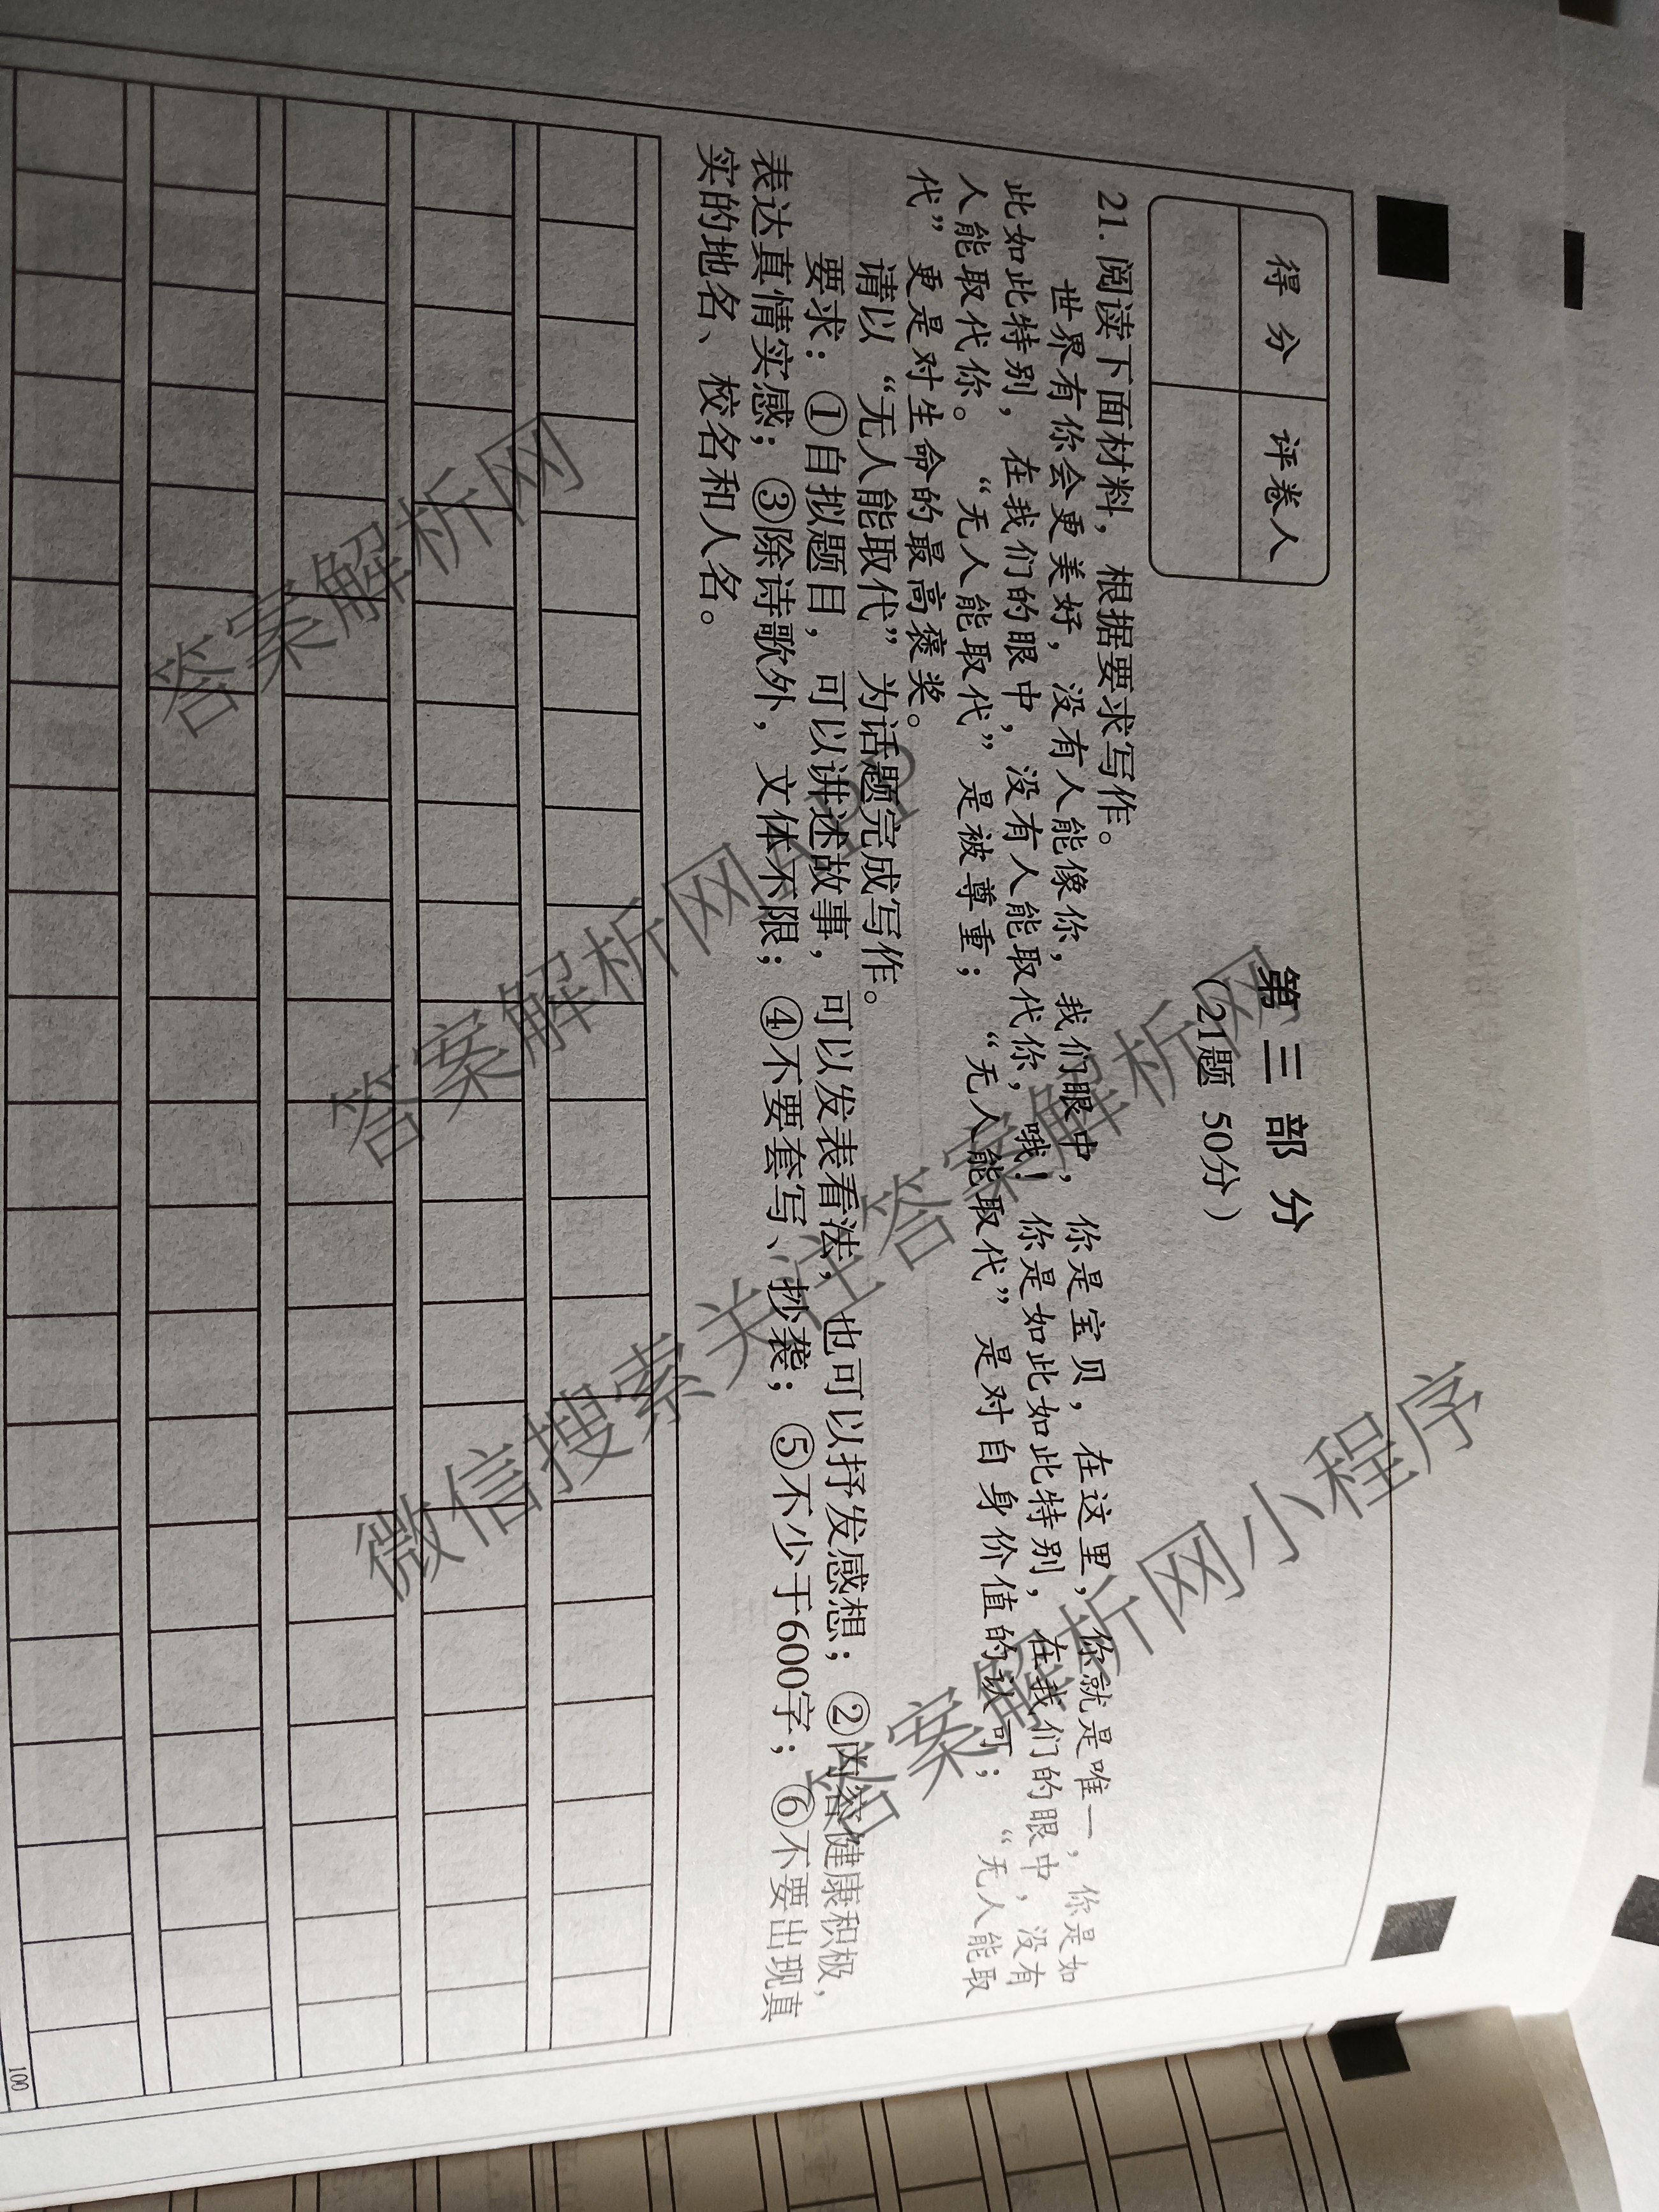 第三部分
（21题 50分）
得分 评卷人
21.阅读下面材料，根据要求写作。
世界有你会更美好，没有人能像你，我们眼中，你是宝贝，在这里，你就是唯一，你是如
此如此特别，在我们的眼中，没有人能取代你，哦！你是如此如此特别，在我们的眼中，没有
人能取代你。“无人能取代”是被尊重；“无人能取代”是对自身价值的认可；“无人能取
代”更是对生命的最高褒奖。
请以“无人能取代”为话题完成写作。
要求：①自拟题目，可以讲述故事，可以发表看法，也可以抒发感想；②内容健康积极，
表达真情实感；③除诗歌外，文体不限；④不要套写、抄袭；⑤不少于600字；⑥不要出现真
实的地名、校名和人名。
100
答案解析网
答案解析网APP
微信搜索关注答案解析网
答案解析网小程序